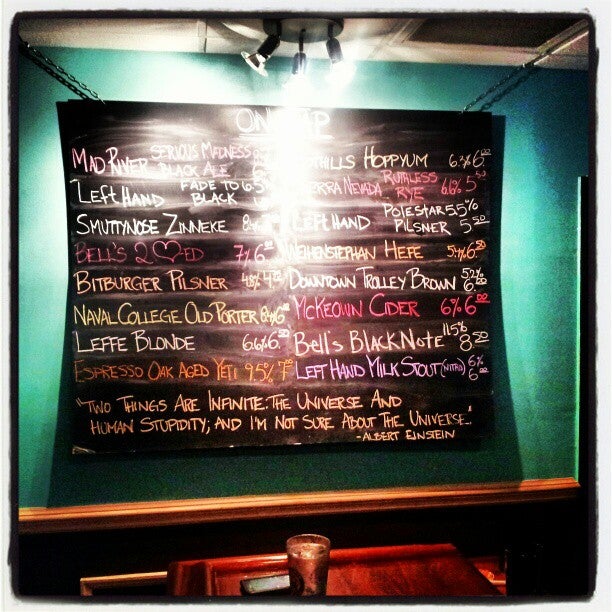 ON TAP
MAD RIVER SERIOUS MADNESS BLACK ALE
LEFT HAND FADE TO BLACK
SMUTTYNOSE ZINNEKE
BELL'S 2 ♡ED 7%
BITBURGER PILSNER 4.8%
NAVAL COLLEGE OLD PORTER
LEFFE BLONDE 6.6%
ESPRESSO OAK AGED YETI 9.5% 7.00
HOPPYUM
SIERRA NEVADA RUTHLESS RYE 6.6% 5.50
LEFT HAND POLESTAR PILSNER 5.5% 5.50
WEIHENSTEPHAN HEFE 5.4% 6.50
DOWNTOWN TROLLEY BROWN 5.2% 6.00
MCKEOWN CIDER 6% 6.00
BELL'S BLACK NOTE 11.5% 8.50
LEFT HAND MILK STOUT (NITRO) 6% 6.00
"TWO THINGS ARE INFINITE: THE UNIVERSE AND
HUMAN STUPIDITY; AND I'M NOT SURE ABOUT THE UNIVERSE."
- ALBERT EINSTEIN